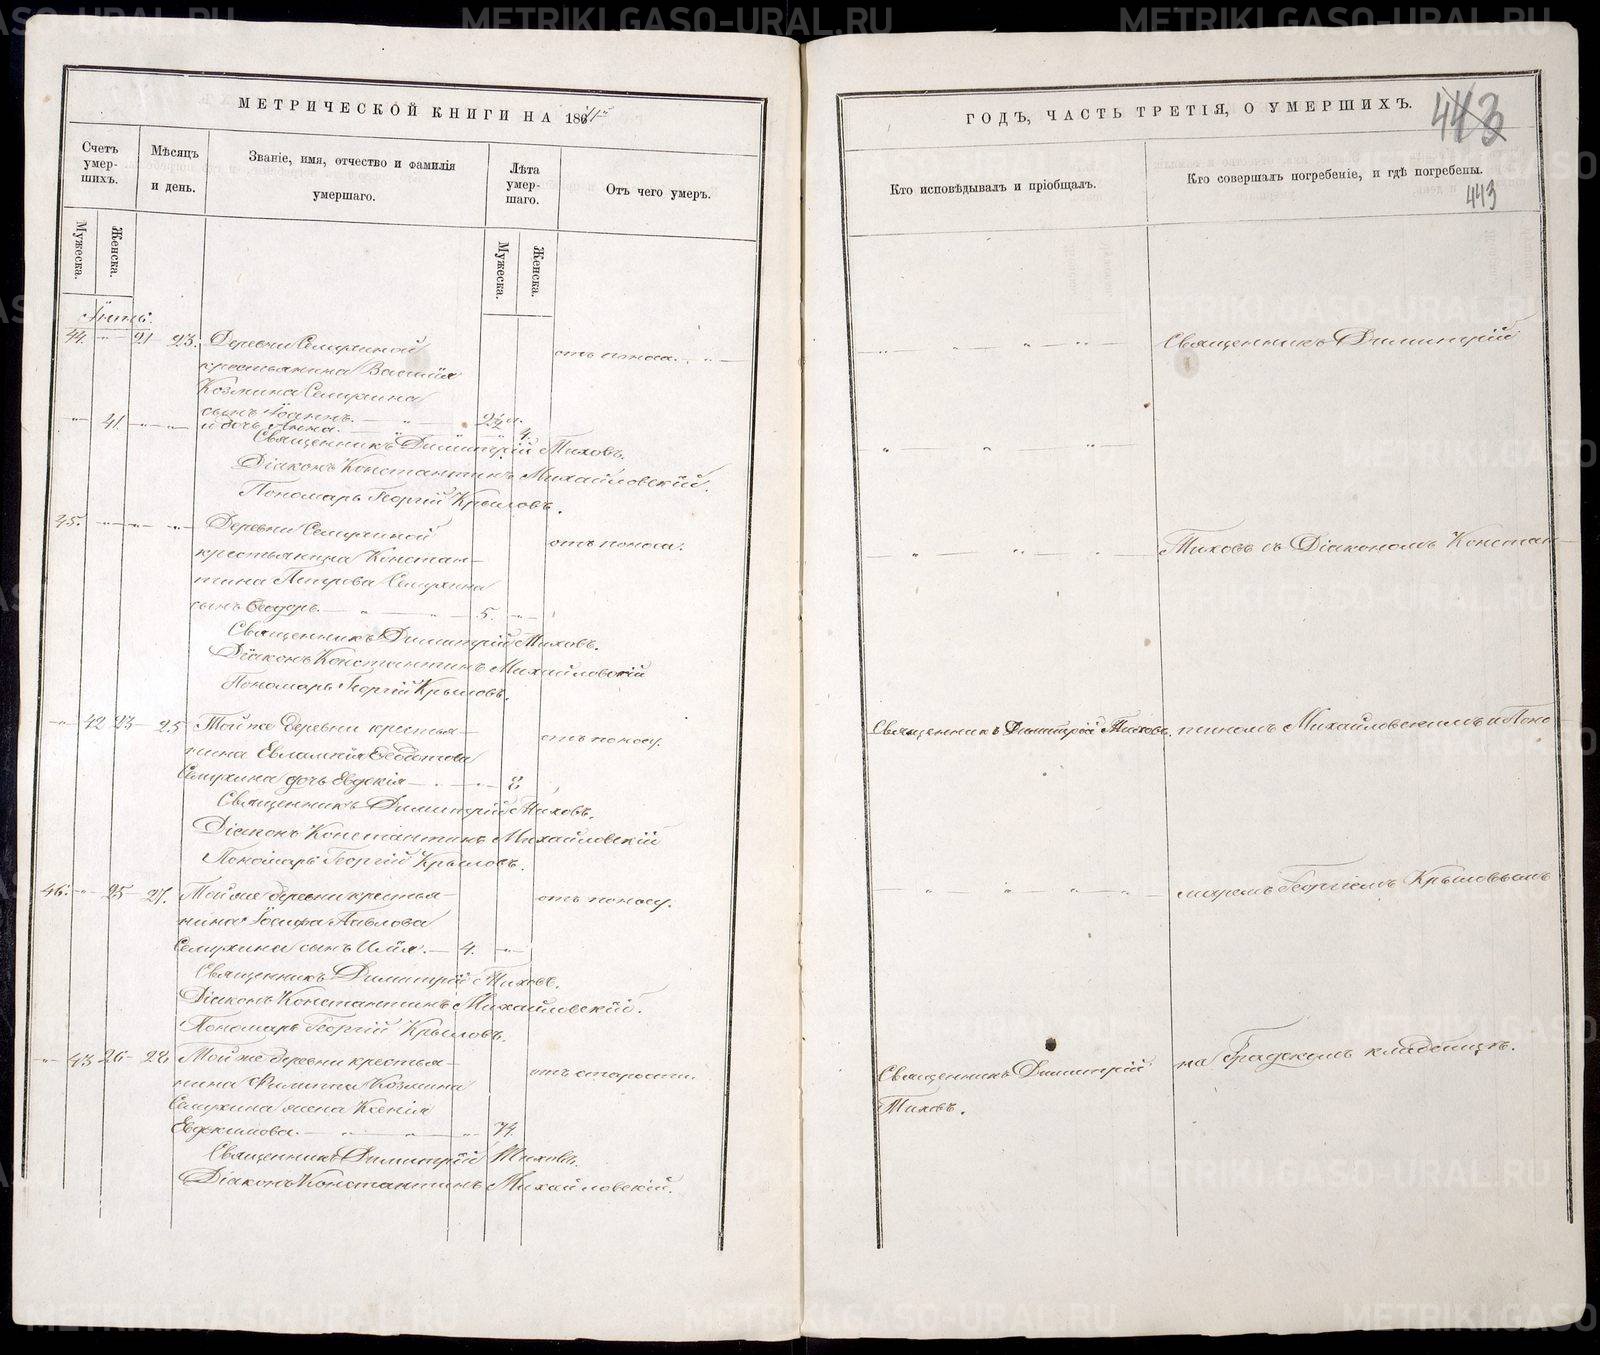 МЕТРИЧЕСКОЙ КНИГИ НА 186
Счетъ умер-шихъ.
Мѣсяцъ и день.
Званіе, имя, отчество и фамилія умершаго.
Лѣта умер-шаго.
Отъ чего умеръ.
Мужеска. Женска.
Мужеска. Женска.
44. 21 23. Деревни Семухиной
крестьянина Василія
Козмина Семухина
сынъ Іоаннъ. 2½
отъ поноса.
41. и дочь Анна. 4.
Священникъ Димитрій Тиховъ.
Діаконъ Константинъ Михайловскій.
Пономарь Георгій Крыловъ.
45. Деревни Семухиной
крестьянина Констан-
тина Петрова Семухина
сынъ Ѳеодоръ. 5.
отъ поноса.
Священникъ Димитрій Тиховъ.
Діаконъ Константинъ Михайловскій
Пономарь Георгій Крыловъ.
42 23 25 Той же деревни крестья-
нина Евлампія
Семухина дочь Евдокія 8
отъ поносу.
Священникъ Димитрій Тиховъ.
Діаконъ Константинъ Михайловскій
Пономарь Георгій Крыловъ.
46. 25 27. Той же деревни крестья-
нина Іосифа Павлова
Семухина сынъ Илія. 4.
отъ поносу.
Священникъ Димитрій Тиховъ.
Діаконъ Константинъ Михайловскій.
Пономарь Георгій Крыловъ.
43 26 28 Той же деревни крестья-
нина Филиппа Козмина
Семухина жена Ксенія
Евдокимова. 74.
отъ старости.
Священникъ Димитрій Тиховъ.
Діаконъ Константинъ Михайловскій.
ГОДЪ, ЧАСТЬ ТРЕТІЯ, О УМЕРШИХЪ.
443
Кто исповѣдывалъ и пріобщалъ.
Кто совершалъ погребеніе, и гдѣ погребены.
443
Священникъ Димитрій
Тиховъ съ Діакономъ Констан-
Священникъ Димитрій Тиховъ.
тиномъ Михайловскимъ и Поно-
маремъ Георгіемъ Крыловымъ
Священникъ Димитрій
Тиховъ.
на Градскомъ кладбищѣ.
METRIKI.GASO-URAL.RU